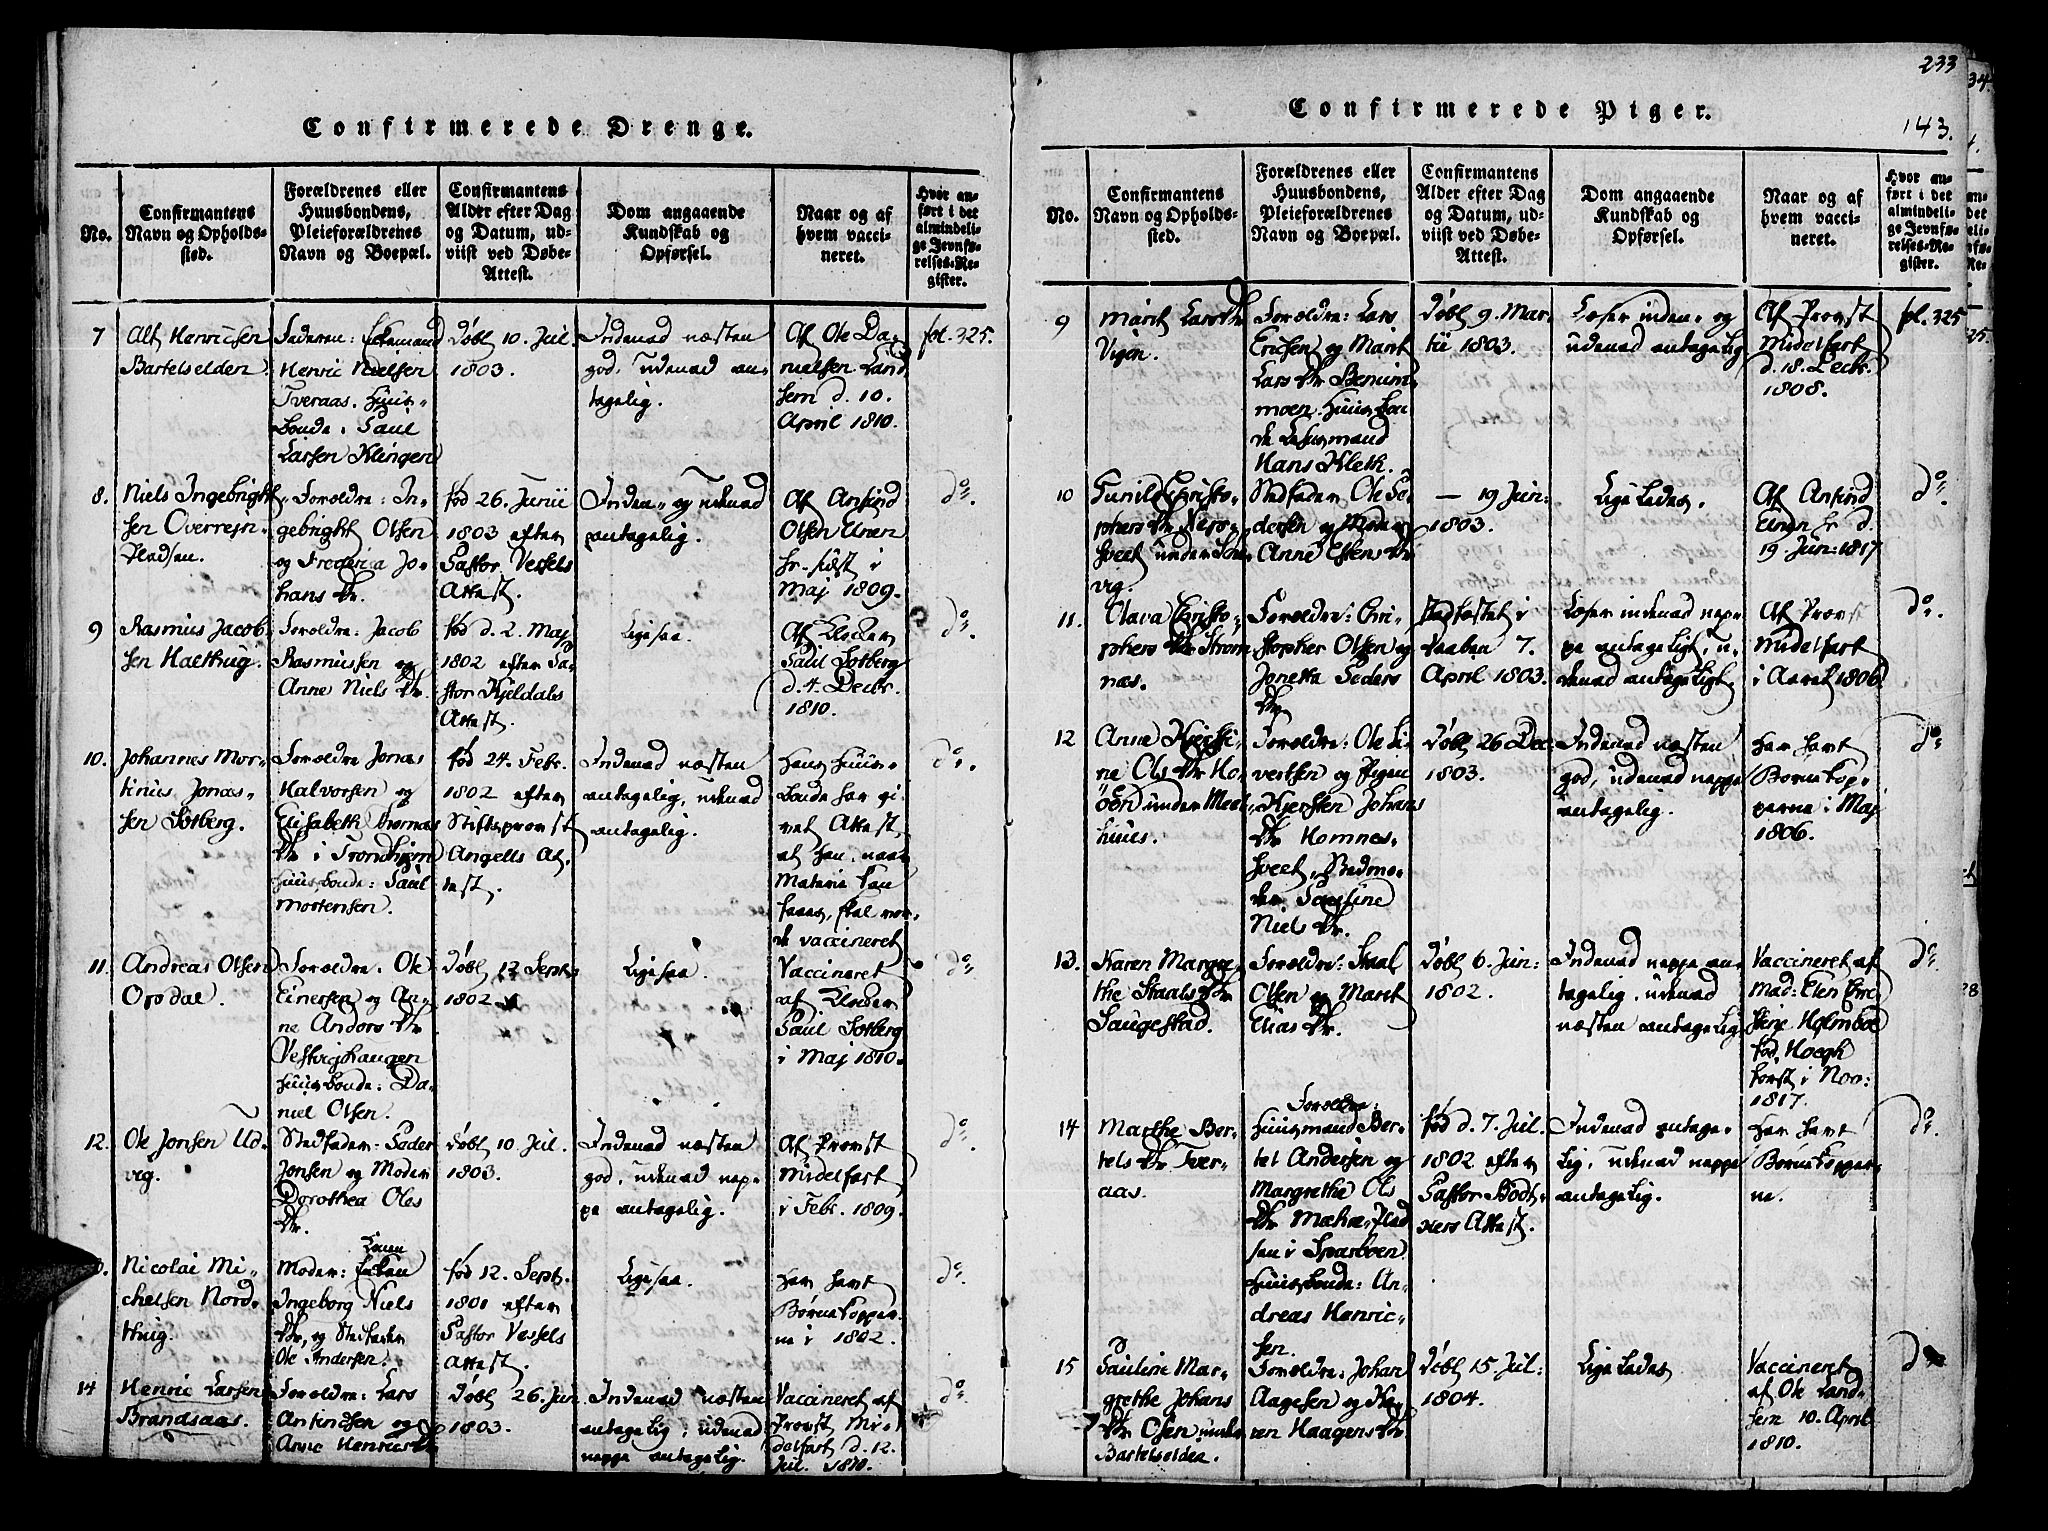 Confirmerede Drenge.
No.
Confirmantens
Navn og Opholds-
sted.
Forældrenes eller
Huusbondens,
Pleieforældrenes
Navn og Boepæl.
Confirmantens
Alder efter Dag
og Datum, ud-
viist ved Døbe-
Attest.
Dom angaaende
Kundskab og
Opførsel.
Naar og af
hvem vacci-
neret.
Hvor an-
ført i det
almindeli-
ge Jevnfø-
relses-Re-
gister.
7
Alf Henricsen
Bartelselden
Faderen:
Henric Nielsen
Tveraas. Huus-
bonde: Paul
Larsen Klingen
Døbt 10. Jul.
1803.
Indenad næsten
god, udenad an-
tagelig.
Af Ole Da-
nielsen Land-
sem d. 10.
April 1810.
fol. 325.
8.
Niels Ingebrigt-
sen Overrejn-
Pladsen.
Forældre: In-
gebrigt Olsen
og Frederica Jo-
hans Dr.
fød 26. Junii
1803 efter
Pastor Vessels
Attest.
Inden- og udenad
antagelig.
Af Anfind
Olsen Unen
Maj 1809.
do.
9
Rasmus Jacob-
sen Halthug.
Forældre: Jacob
Rasmussen og
Anne Niels Dr.
fød d. 2. Maj
1802 efter Pa-
stor Kjeldals
Attest.
Ligesaa.
Af Klokker
Paul Solberg
d. 4. Decbr.
1810.
do.
10.
Johannes Mor-
tinus Jonas-
sen Solberg.
Forældre Jonas
Halvorsen og
Elisabeth Thomas
Dr. i Trondhjem
Huusbonde: Paul
Mortensen.
fød 24. Febr.
1802 efter
Stiftsprovst
Angells At-
test.
Indenad næsten
antagelig, udenad
antagelig.
Hans Huus-
bonde har gi-
vet Attest,
at han, naar
Materie kan
faaes, skal vor-
de vaccineret
do.
11.
Andreas Olsen
Orsdal.
Forældre: Ole
Einersen og An-
ne Andors Dr.
Vestvighaugen
Huusbonde: Da-
niel Olsen.
Døbt 12 Septr.
1802
Ligesaa.
Vaccineret
af Klokker
Paul Solberg
i Maj 1810.
do.
12.
Ole Jonsen Ud-
vig.
Stedfader: Peder
Jonsen og Moder
Dorothea Oles
Dr.
Døbt 10 Jul.
1803.
Indenad næsten
god, udenad nep-
pe antagelig.
Af Provst
Midelfart
i Febr. 1809.
do.
Nicolai Mi-
chelsen Nord-
thuig.
Moder: Enken
Ingeborg Niels
Dr. og Stedfader
Ole Andersen.
fød 12. Sept.
1801 efter
Pastor Vessels
Attest.
Ligesaa.
Har havt
Børnekopper-
ne i 1802.
do.
14
Henric Larsen
Brandsaas.
Forældre: Lars
Anfindsen og
Anne Henrics Dr
Døbt 26. Jun
1803.
Indenad næsten
antagelig, udenad
neppe antagelig.
Vaccineret af
Provst Mi-
delfart d. 12.
Jul. 1810.
do.
233
143.
Confirmerede Piger.
No.
Confirmantens
Navn og Opholds-
sted.
Forældrenes eller
Huusbondens,
Pleieforældrenes
Navn og Boepæl.
Confirmantens
Alder efter Dag
og Datum, ud-
viist ved Døbe-
Attest.
Dom angaaende
Kundskab og
Opførsel.
Naar og af
hvem vacci-
neret.
Hvor an-
ført i det
almindeli-
ge Jevnfø-
relses-Re-
gister.
9
Marit Lars Dr
Vigen.
Forældre: Lars
Ericsen og Marit
Lars Dr
moen. Huusbon-
de Lehnsmand
Hans Kleth.
Døbt 9. Mar-
tii 1803.
Læser inden- og
udenad antagelig
Af Provst
Midelfart
d. 18. Decbr.
1808.
fol. 325
10
Gunild Christo-
phers Dr
under
vig.
Stedfader Ole Pe-
dersen og Moder
Anne Dr
— 19 Jun:
1803.
Ligeledes.
Af Anfind
Unen d.
19 Jun: 1817
do.
11.
Olava Christo-
phers Dr Strøm-
næs.
Forældre: Chri-
stopher Olsen og
Jonetta Peders
Dr.
Stadfæstet i
Daaben 7.
April 1803.
Læser indenad nep-
pe antageligt, u-
denad antageligt
Af Provst
Midelfart
i Aaret 1806
do.
12
Anne Kjersti-
ne Ols Dr
under
huus.
Forældre: Ole Si-
vertsen og Pigen
Kjersten Johans
Dr Homnes-
Niels Dr.
Døbt 26 Dec:
1803.
Indenad næsten
god, udenad neppe
antagelig.
Har havt
Børnekop-
perne i Maj
1806.
do
13.
Karen Margre-
the Staals Dr
Saugestad.
Forældre: Staal
Olsen og Maret
Elias Dr.
Døbt 6. Jun:
1802.
Indenad neppe an-
tagelig, udenad
næsten antagelig
Vaccineret af
Mad: Elen Chri-
stene Holmboe
fød Hoegh
først i Nov:
1817.
do.
14
Marthe Ber-
tels Dr Tver-
aas.
Forældre:
Huusmand Ber-
tel Andersen og
Margrethe Ols
Dr Plad-
sen i Sparboen
Huusbonde: An-
dreas Henric-
sen.
fød d. 7. Jul.
1802 efter
Pastor Bodt-
kers Attest.
Indenad antage-
lig, udenad neppe
antagelig.
Har havt
Børnekopper-
ne.
do.
15
Pauline Mar-
grethe Johans
Dr Olsen under
Bartelselden.
Forældre: Johan
Aagesen og Ka-
ren Haagens Dr
Døbt 15. Jul:
1804.
Ligeledes
Vaccineret
af Ole Land-
sem 10. April
1810.
d